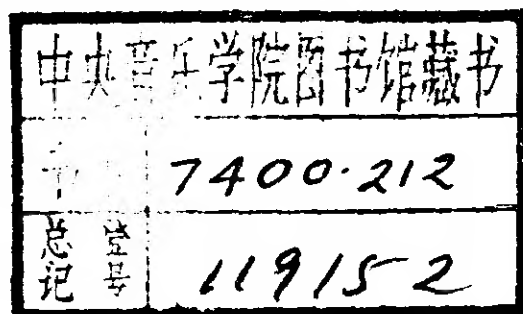 中央音乐学院图书馆藏书
书 7400·212
总登记号 119152